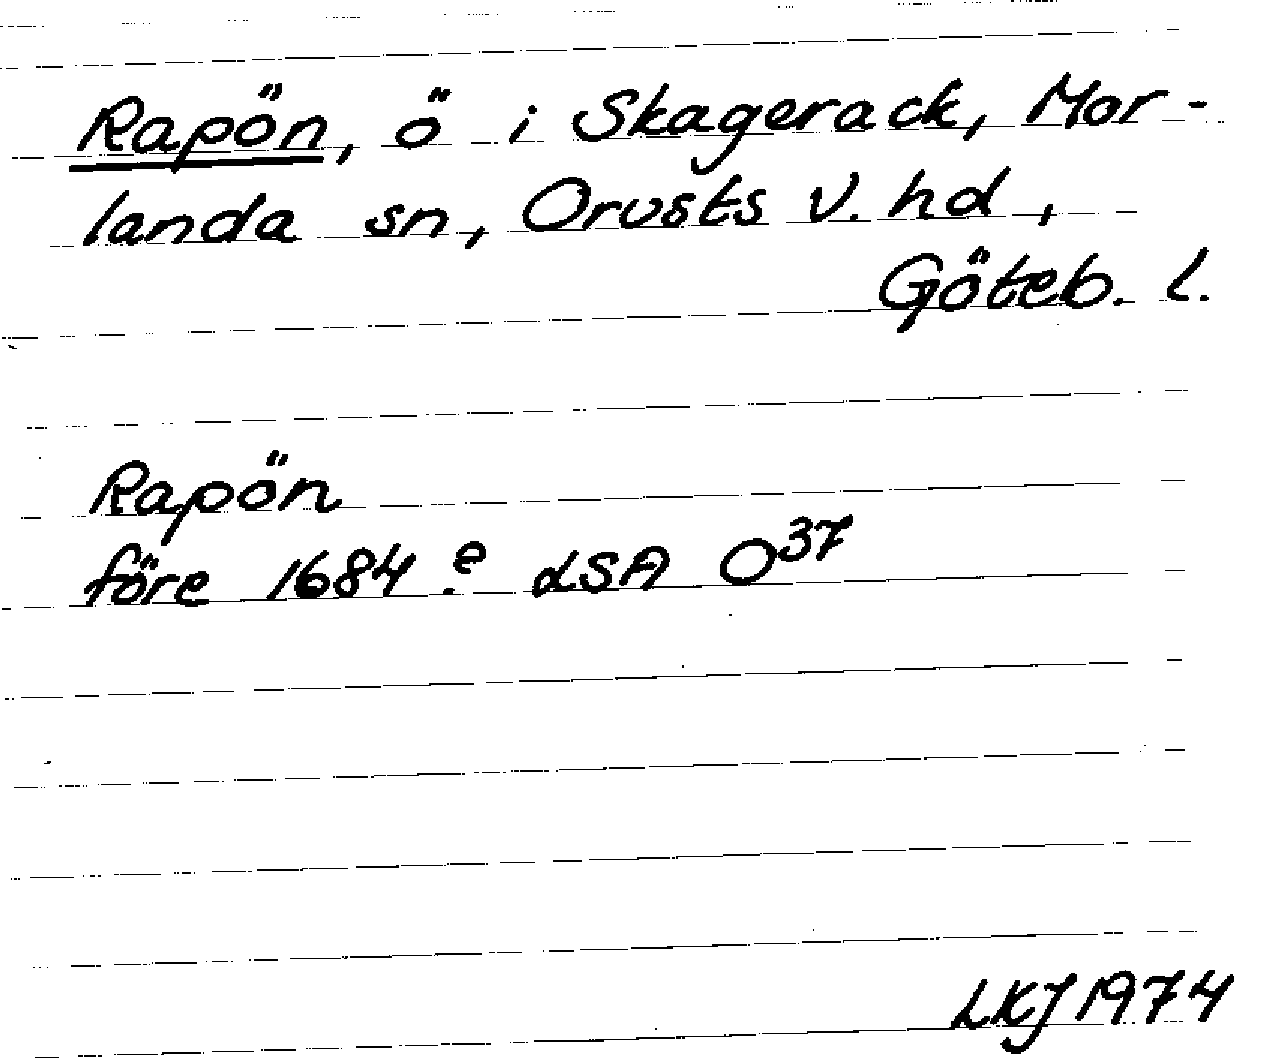 Rapön, ö i Skagerack, Mor-
landa sn, Orusts v. hd,
Göteb. l.
Rapön
före 1684? LSA O37
LKJ 1974